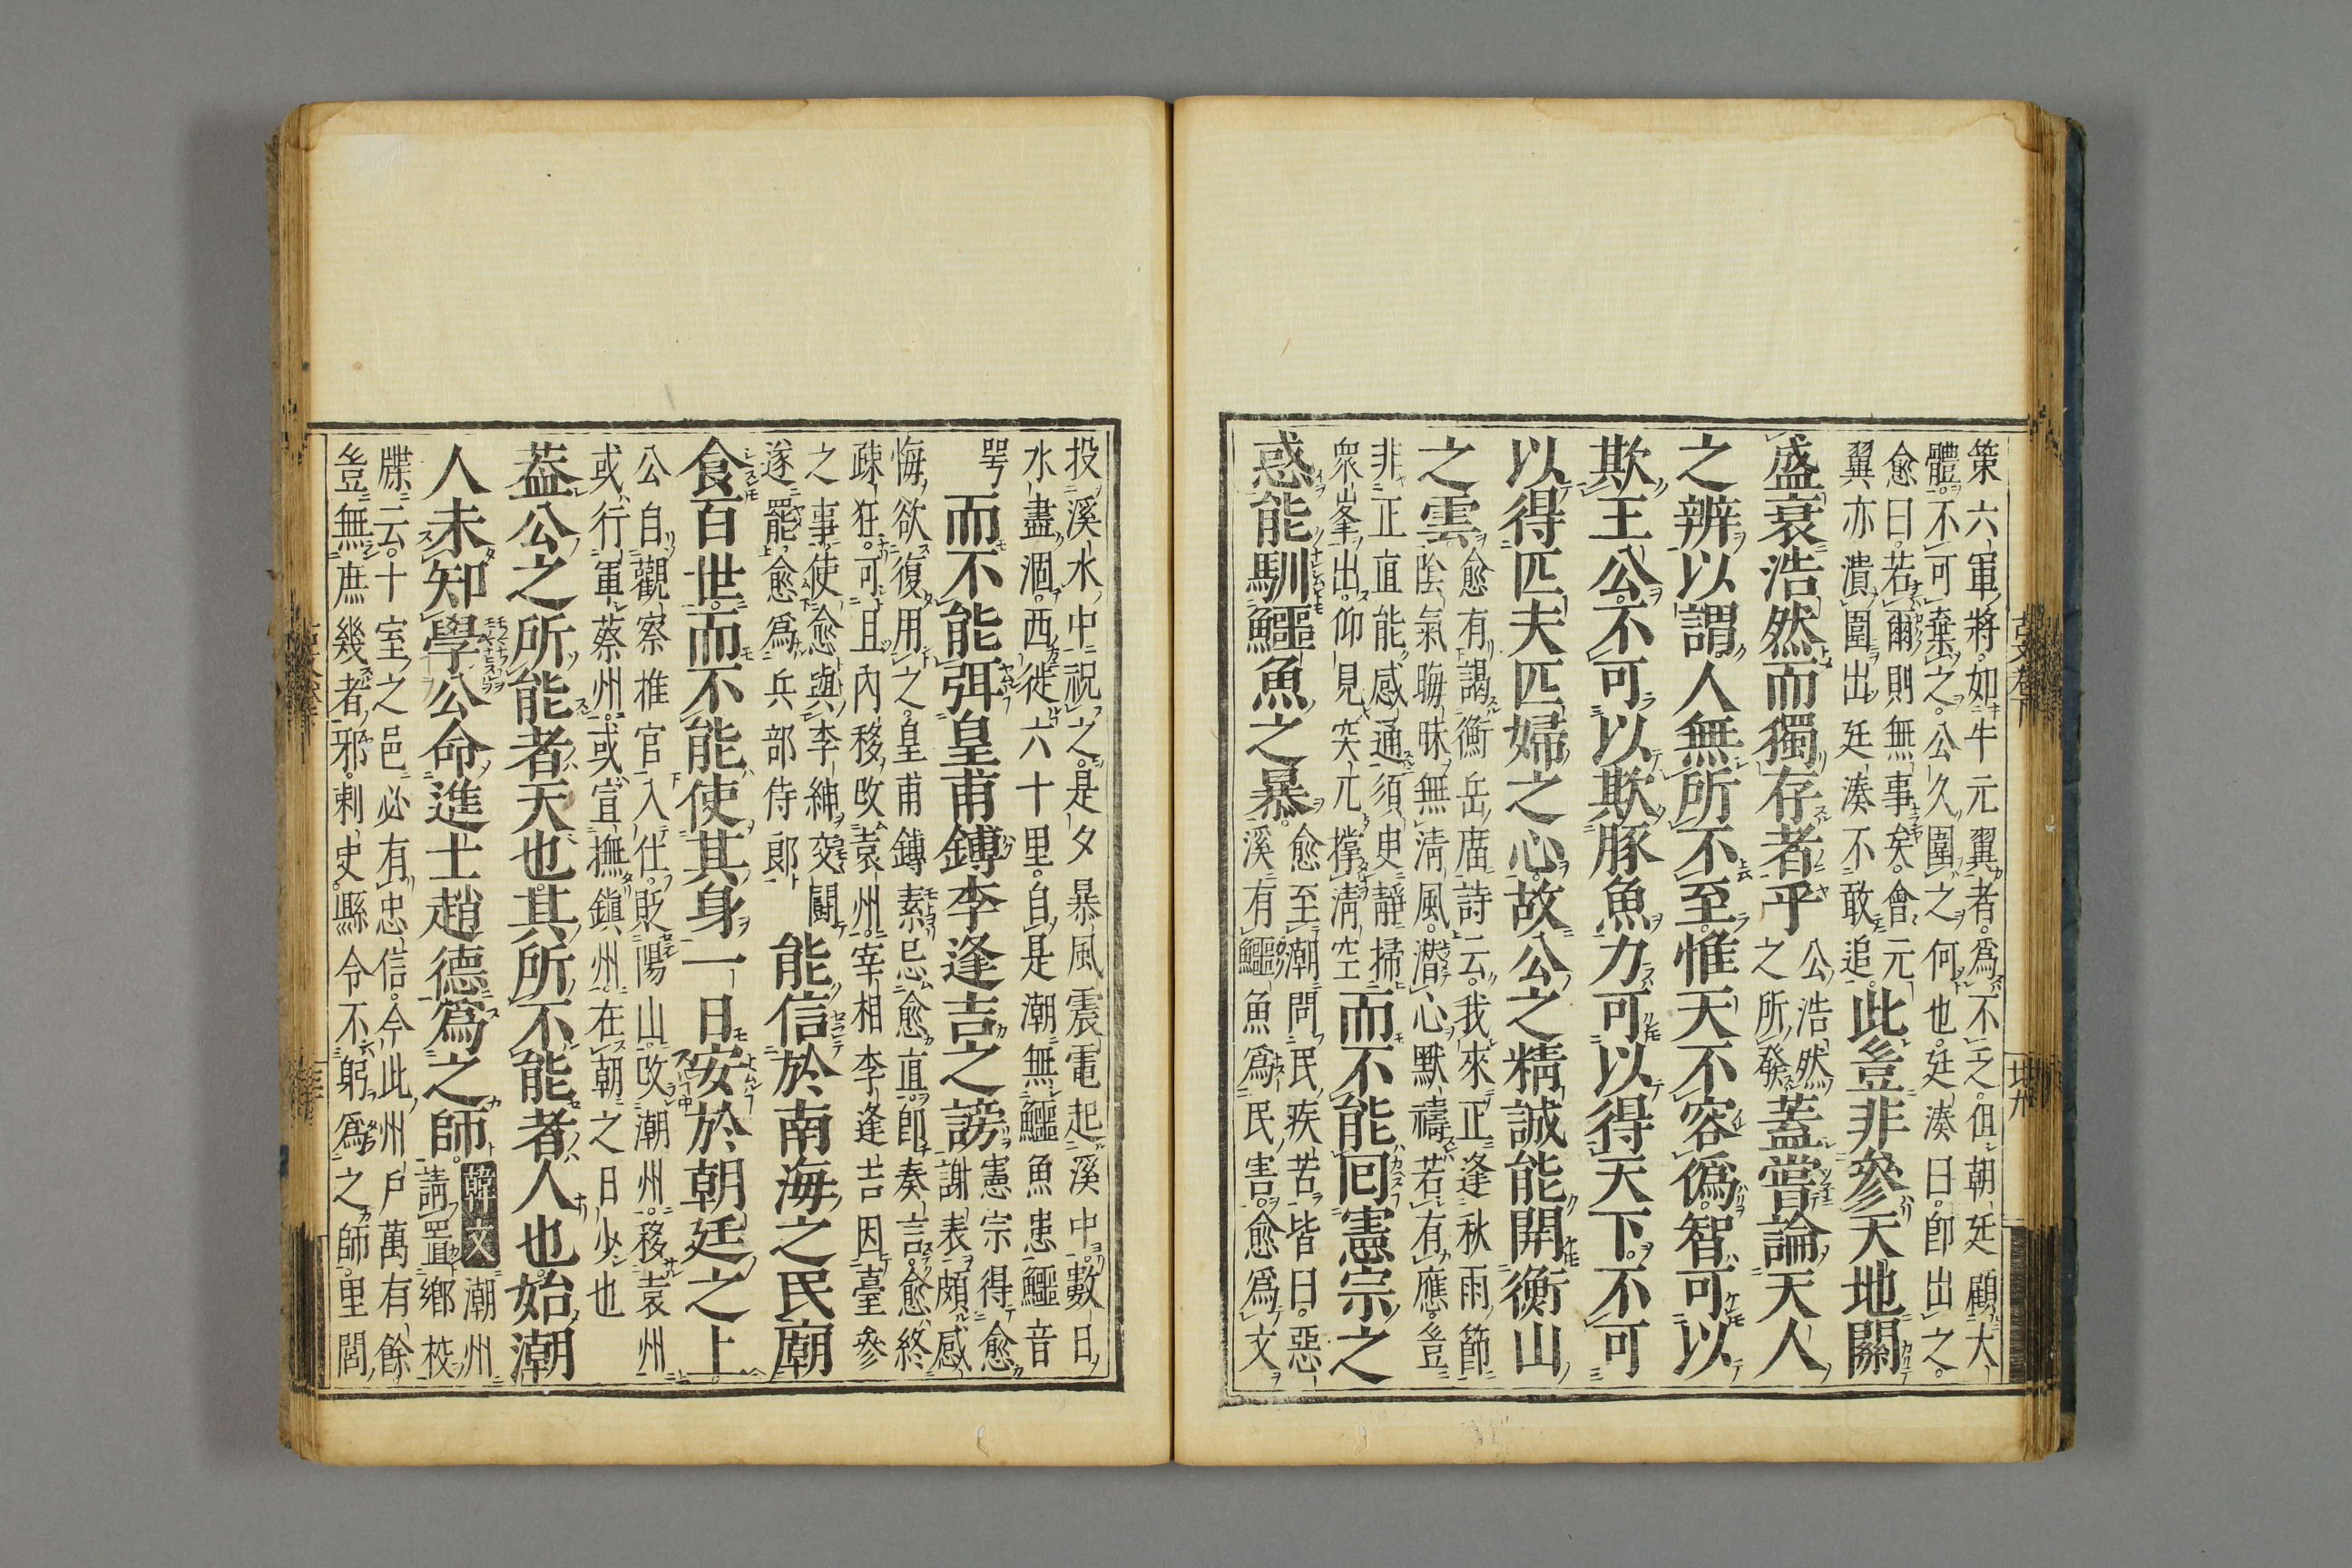 策六軍將如牛元翼者爲不乏但朝廷顧大
體不可棄之公久圍之何也廷湊曰卽出之
愈曰若爾則無事矣會元
翼亦潰圍出廷湊不敢追
此豈非參天地關
盛衰浩然而獨存者乎
公浩然
之所發
蓋嘗論天人
之辨以謂人無所不至惟天不容僞智可以
欺王公不可以欺豚魚力可以得天下不可
以得匹夫匹婦之心故公之精誠能開衡山
之雲
愈有謁衡岳庿詩云我來正逢秋雨節
陰氣晦昧無清風潛心默禱若有應豈
非正直能感通須臾靜掃
衆峯出仰見突兀撑淸空
而不能回憲宗之
惑能馴鱷魚之暴
愈至潮問民疾苦皆曰惡
溪有鱷魚爲民害愈爲文
投溪水中祝之是夕暴風震電起溪中數日
水盡涸西徙六十里自是潮無鱷魚患鱷音
咢
而不能弭皇甫鎛李逢吉之謗
憲宗得愈
謝表頗感
悔欲復用之皇甫鎛素忌愈直卽奏言愈終
疎狂可且內移改袁州宰相李逢吉因臺參
之事使愈與李紳交鬭
遂罷愈爲兵部侍郎
能信於南海之民廟
食百世而不能使其身一日安於朝廷之上
公自觀察推官入仕貶陽山改潮州移袁州
或行軍蔡州或宣撫鎭州在朝之日少也
葢公之所能者天也其所不能者人也始潮
人未知學公命進士趙德爲之師
韓文潮州
請置鄉校
牒云十室之邑必有忠信今此州戶萬有餘
豈無庶幾者邪刺史縣令不躬爲之師里閭